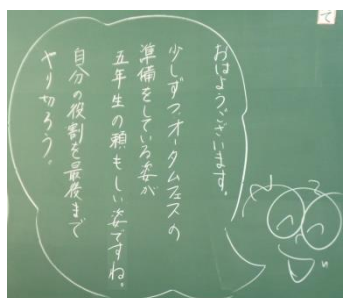 おはようございます。
少しずつオータムフェスの
準備をしている姿が
五年生の頼もしい姿ですね。
自分の役割を最後まで
やり切ろう。
て